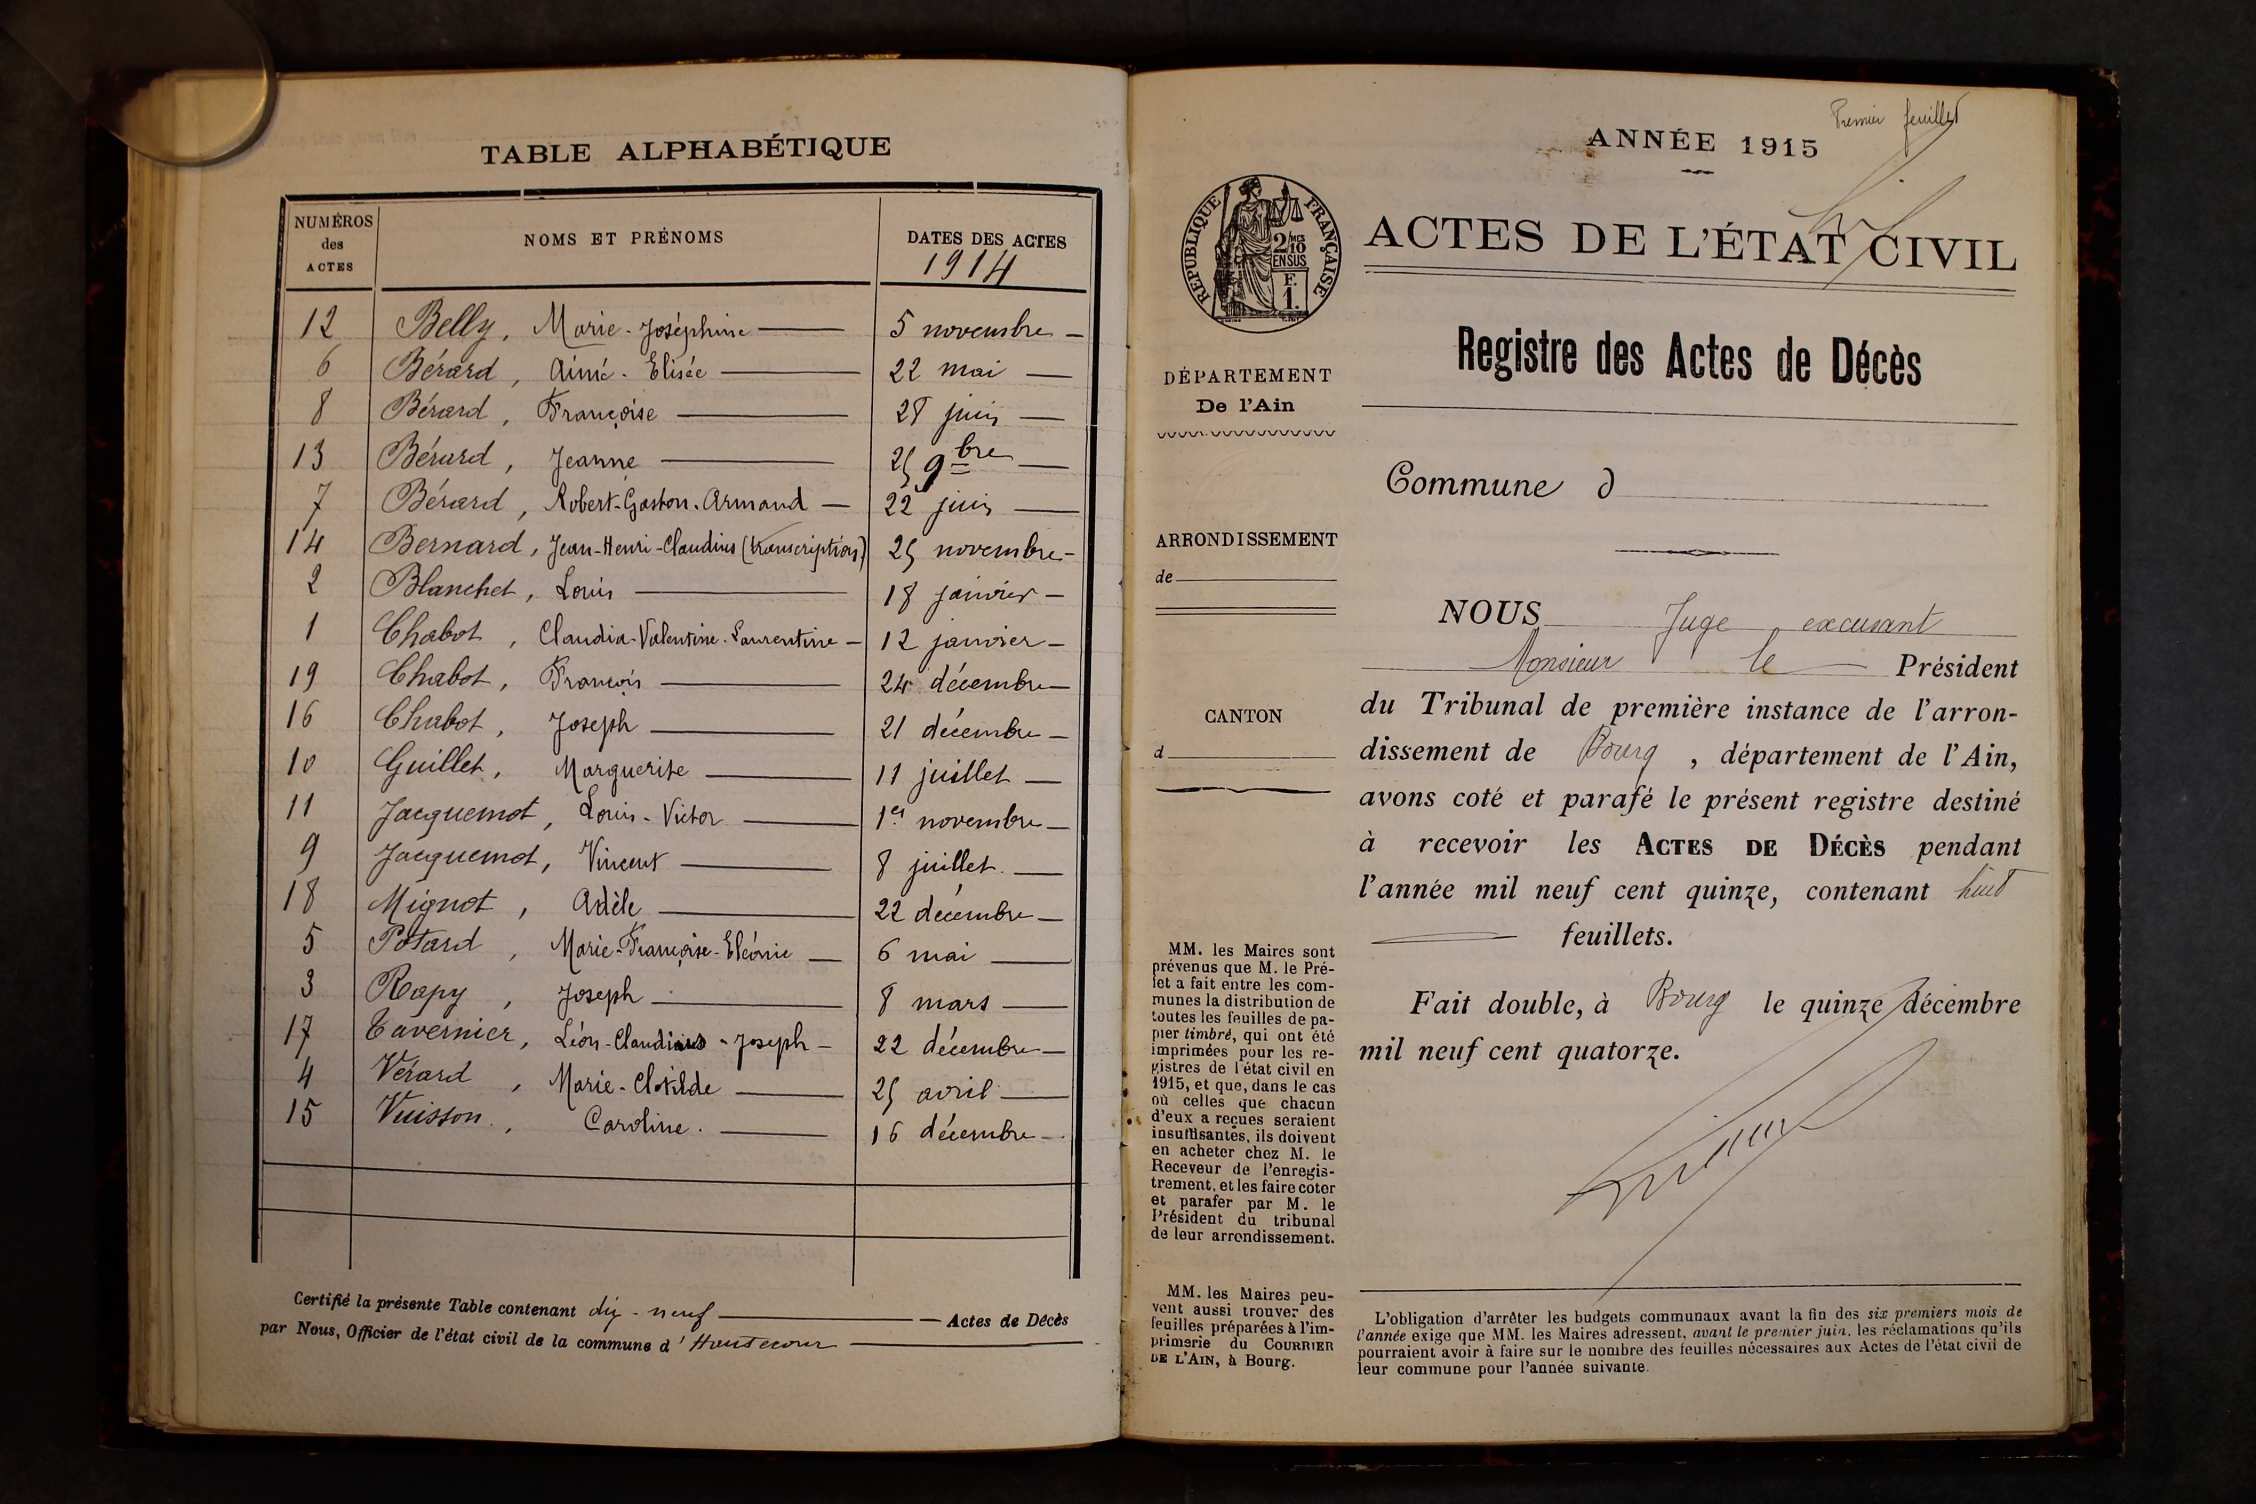 TABLE ALPHABÉTIQUE
NUMÉROS des ACTES
NOMS ET PRÉNOMS
DATES DES ACTES
1914
12 Belly, Marie-Joséphine 5 novembre
6 Bérard, Aimé-Elisée 22 mai
8 Bérard, Françoise 28 juin
13 Bérard, Jeanne 25 9bre
7 Bérard, Robert-Gaston-Armand 22 juin
14 Bernard, Jean-Henri-Claudius (transcription) 25 novembre
2 Blanchet, Louis 18 janvier
1 Chabot, Claudia-Valentine-Laurentine 12 janvier
19 Chabot, François 24 décembre
16 Chabot, Joseph 21 décembre
10 Guillet, Marguerite 11 juillet
11 Jacquemot, Louis-Victor 1er novembre
9 Jacquemot, Vincent 8 juillet
18 Mignot, Adèle 22 décembre
5 Potard, Marie-Françoise-Eléonie 6 mai
3 Rapy, Joseph 8 mars
17 Tavernier, Léon-Claudius-Joseph 22 décembre
4 Vérard, Marie-Clotilde 25 avril
15 Vuisson, Caroline. 16 décembre
Certifié la présente Table contenant dix-neuf Actes de Décès
par Nous, Officier de l'état civil de la commune d'Hautecour
Premier feuillet
ANNÉE 1915
RÉPUBLIQUE FRANÇAISE
2/10 MES
EN SUS
F.
1.
ACTES DE L'ÉTAT CIVIL
Registre des Actes de Décès
DÉPARTEMENT
De l'Ain
Commune d
ARRONDISSEMENT
de
CANTON
d
NOUS Juge excusant
Monsieur le Président
du Tribunal de première instance de l'arron-
dissement de Bourg, département de l'Ain,
avons coté et parafé le présent registre destiné
à recevoir les ACTES DE DÉCÈS pendant
l'année mil neuf cent quinze, contenant huit
feuillets.
Fait double, à Bourg le quinze décembre
mil neuf cent quatorze.
MM. les Maires sont
prévenus que M. le Pré-
fet a fait entre les com-
munes la distribution de
toutes les feuilles de pa-
pier timbré, qui ont été
imprimées pour les re-
gistres de l'état civil en
1915, et que, dans le cas
où celles que chacun
d'eux a reçues seraient
insuffisantes, ils doivent
en acheter chez M. le
Receveur de l'enregis-
trement, et les faire coter
et parafer par M. le
Président du tribunal
de leur arrondissement.
MM. les Maires peu-
vent aussi trouver des
feuilles préparées à l'im-
primerie du COURRIER
DE L'AIN, à Bourg.
L'obligation d'arrêter les budgets communaux avant la fin des six premiers mois de
l'année exige que MM. les Maires adressent, avant le premier juin, les réclamations qu'ils
pourraient avoir à faire sur le nombre des feuilles nécessaires aux Actes de l'état civil de
leur commune pour l'année suivante.